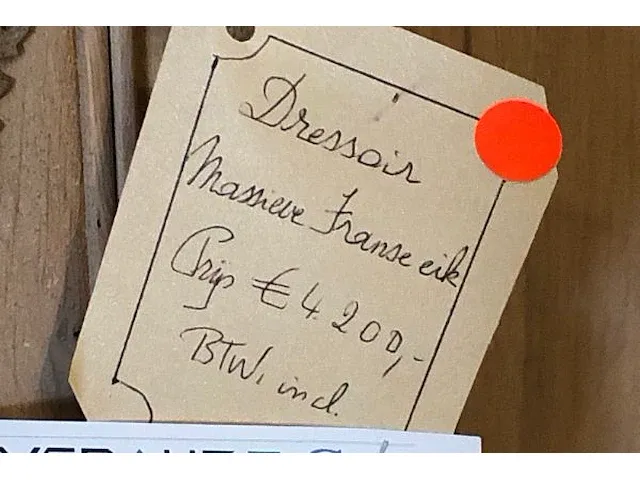 Dressoir
Massieve Franse eik
Prijs € 4.200,-
BTW. incl.